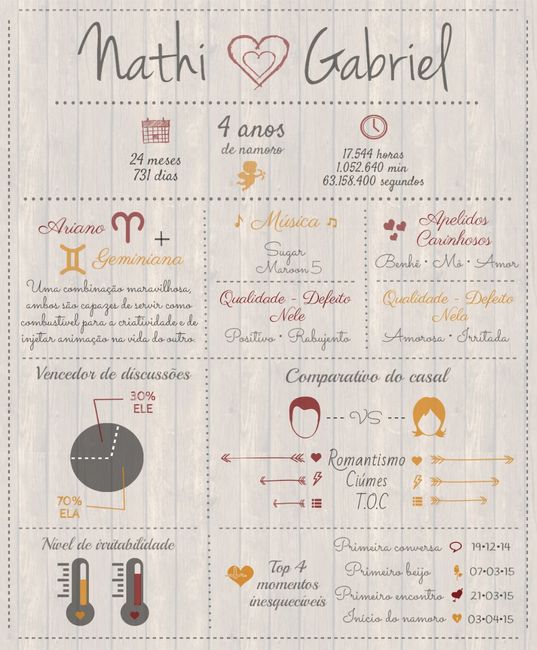 Nathi Gabriel
24 meses
731 dias
4 anos
de namoro
17.544 horas
1.052.640 min
63.158.400 segundos
Ariano
+
Geminiana
Uma combinação maravilhosa,
ambos são capazes de servir como
combustível para a criatividade e de
injetar animação na vida do outro
Música
Sugar
Maroon 5
Apelidos
Carinhosos
Benhê • Mô • Amor
Qualidade - Defeito
Nele
Positivo • Rabujento
Qualidade - Defeito
Nela
Amorosa • Irritada
Vencedor de discussões
30%
ELE
70%
ELA
Comparativo do casal
VS
Romantismo
Ciúmes
T.O.C
Nível de irritabilidade
Top 4
momentos
inesquecíveis
Primeira conversa 19•12•14
Primeiro beijo 07•03•15
Primeiro encontro 21•03•15
Início do namoro 03•04•15